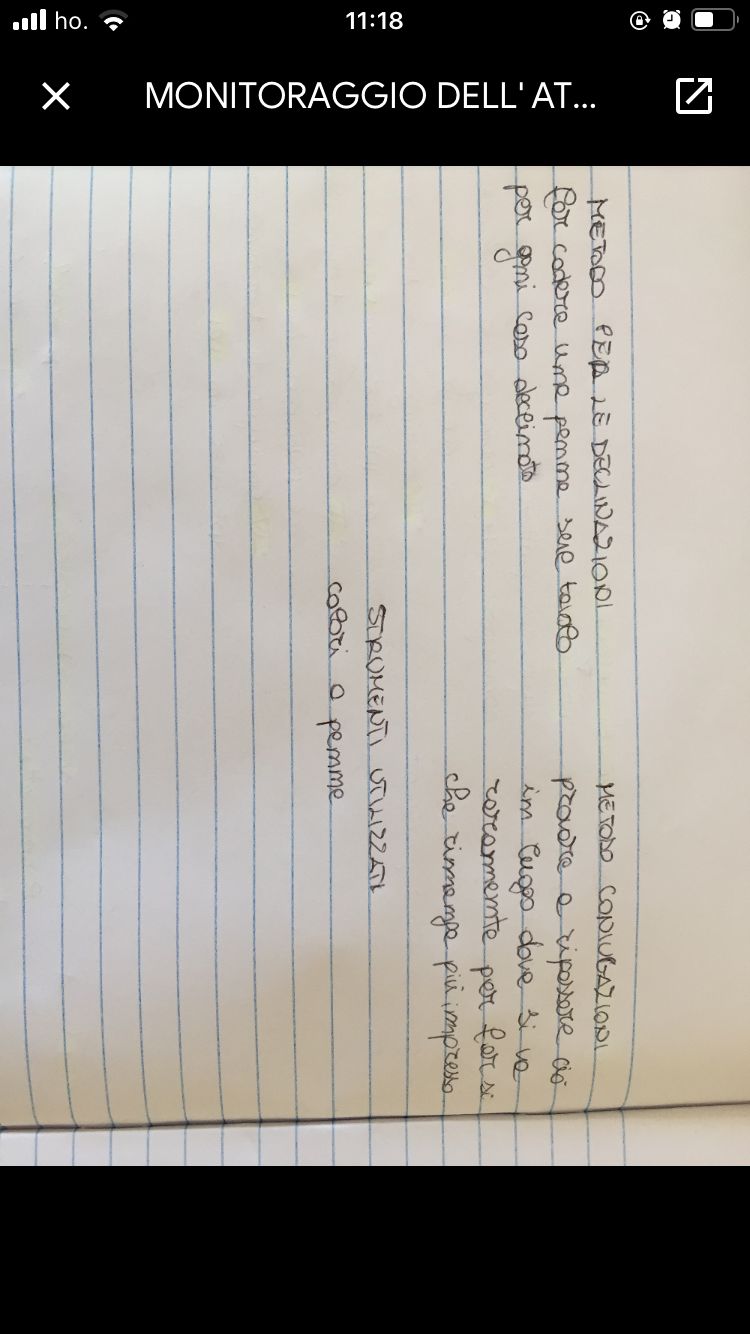 ho.
11:18
MONITORAGGIO DELL' AT...
METODO PER LE DECLINAZIONI
far cadere una penna sul tavolo
per ogni caso declinato
METODO CONIUGAZIONI
provare a ripassare ciò
in luogo dove si va
raramente per far si
che rimanga più impresso
STRUMENTI UTILIZZATI
colori o penne